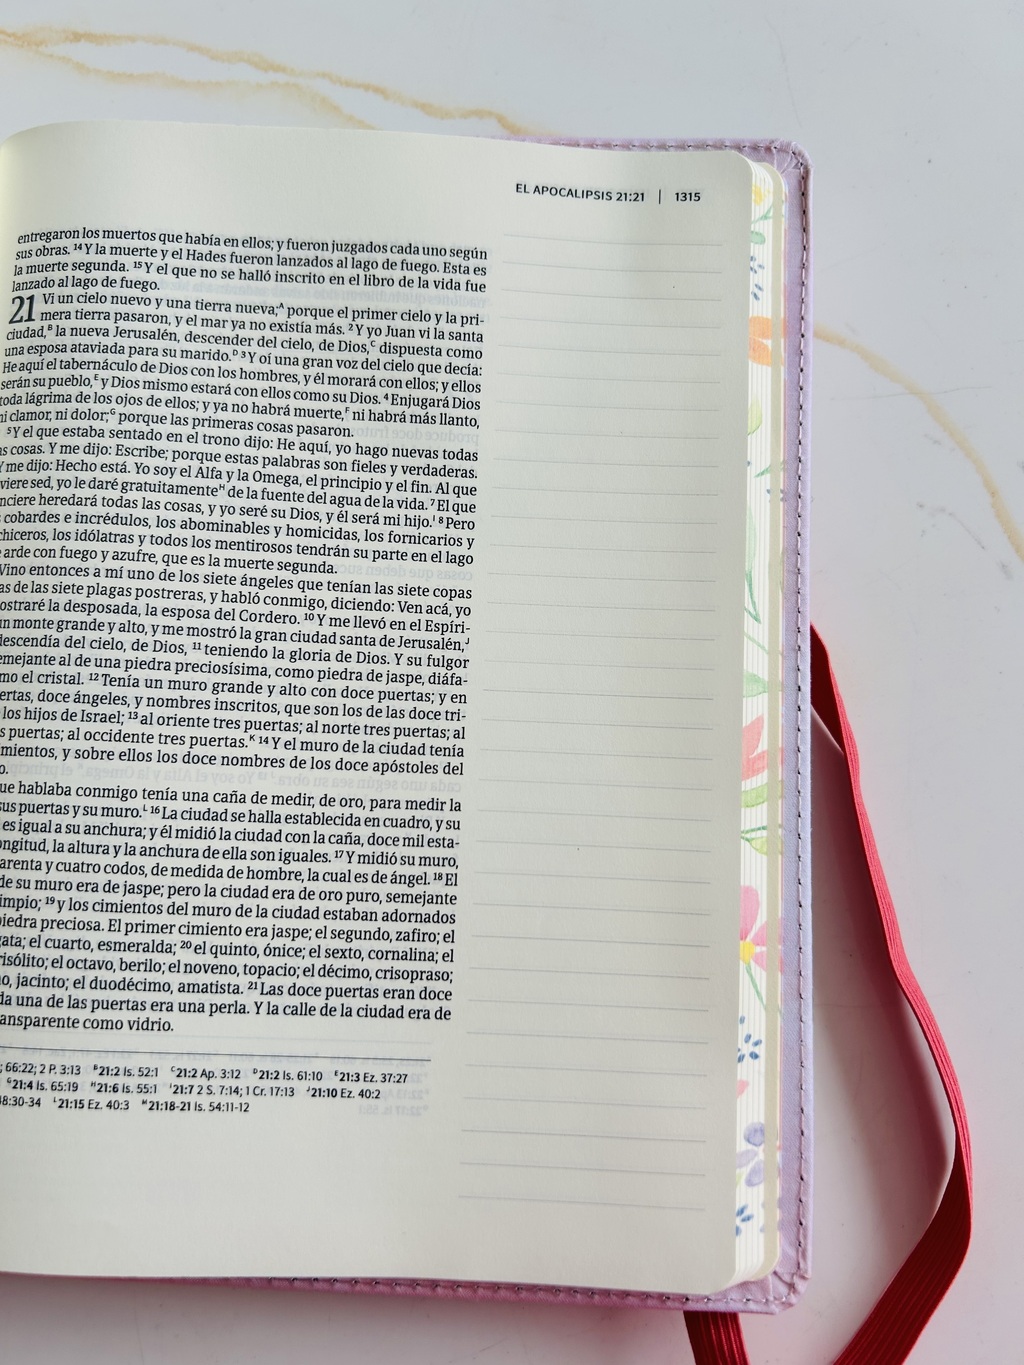 EL APOCALIPSIS 21:21 | 1315
entregaron los muertos que había en ellos; y fueron juzgados cada uno según
sus obras. ¹⁴Y la muerte y el Hades fueron lanzados al lago de fuego. Esta es
la muerte segunda. ¹⁵Y el que no se halló inscrito en el libro de la vida fue
lanzado al lago de fuego.
21 Vi un cielo nuevo y una tierra nueva;ᴬ porque el primer cielo y la pri-
mera tierra pasaron, y el mar ya no existía más. ²Y yo Juan vi la santa
ciudad,ᴮ la nueva Jerusalén, descender del cielo, de Dios,ᶜ dispuesta como
una esposa ataviada para su marido.ᴰ ³Y oí una gran voz del cielo que decía:
He aquí el tabernáculo de Dios con los hombres, y él morará con ellos; y ellos
serán su pueblo,ᴱ y Dios mismo estará con ellos como su Dios. ⁴Enjugará Dios
toda lágrima de los ojos de ellos; y ya no habrá muerte,ꟳ ni habrá más llanto,
ni clamor, ni dolor;ᴳ porque las primeras cosas pasaron.
⁵Y el que estaba sentado en el trono dijo: He aquí, yo hago nuevas todas
as cosas. Y me dijo: Escribe; porque estas palabras son fieles y verdaderas.
Y me dijo: Hecho está. Yo soy el Alfa y la Omega, el principio y el fin. Al que
viere sed, yo le daré gratuitamenteᴴ de la fuente del agua de la vida. ⁷El que
nciere heredará todas las cosas, y yo seré su Dios, y él será mi hijo.ᴵ ⁸Pero
cobardes e incrédulos, los abominables y homicidas, los fornicarios y
hiceros, los idólatras y todos los mentirosos tendrán su parte en el lago
arde con fuego y azufre, que es la muerte segunda.
Vino entonces a mí uno de los siete ángeles que tenían las siete copas
as de las siete plagas postreras, y habló conmigo, diciendo: Ven acá, yo
ostraré la desposada, la esposa del Cordero. ¹⁰Y me llevó en el Espíri-
un monte grande y alto, y me mostró la gran ciudad santa de Jerusalén,ᴶ
descendía del cielo, de Dios, ¹¹teniendo la gloria de Dios. Y su fulgor
emejante al de una piedra preciosísima, como piedra de jaspe, diáfa-
mo el cristal. ¹²Tenía un muro grande y alto con doce puertas; y en
ertas, doce ángeles, y nombres inscritos, que son los de las doce tri-
los hijos de Israel; ¹³al oriente tres puertas; al norte tres puertas; al
s puertas; al occidente tres puertas.ᴷ ¹⁴Y el muro de la ciudad tenía
mientos, y sobre ellos los doce nombres de los doce apóstoles del
o.
ue hablaba conmigo tenía una caña de medir, de oro, para medir la
sus puertas y su muro.ᴸ ¹⁶La ciudad se halla establecida en cuadro, y su
es igual a su anchura; y él midió la ciudad con la caña, doce mil esta-
ongitud, la altura y la anchura de ella son iguales. ¹⁷Y midió su muro,
arenta y cuatro codos, de medida de hombre, la cual es de ángel. ¹⁸El
de su muro era de jaspe; pero la ciudad era de oro puro, semejante
impio; ¹⁹y los cimientos del muro de la ciudad estaban adornados
piedra preciosa. El primer cimiento era jaspe; el segundo, zafiro; el
gata; el cuarto, esmeralda; ²⁰el quinto, ónice; el sexto, cornalina; el
risólito; el octavo, berilo; el noveno, topacio; el décimo, crisopraso;
o, jacinto; el duodécimo, amatista. ²¹Las doce puertas eran doce
da una de las puertas era una perla. Y la calle de la ciudad era de
ansparente como vidrio.
; 66:22; 2 P. 3:13 ᴮ21:2 Is. 52:1 ᶜ21:2 Ap. 3:12 ᴰ21:2 Is. 61:10 ᴱ21:3 Ez. 37:27
ᴳ21:4 Is. 65:19 ᴴ21:6 Is. 55:1 ᴵ21:7 2 S. 7:14; 1 Cr. 17:13 ᴶ21:10 Ez. 40:2
48:30-34 ᴸ21:15 Ez. 40:3 ᴹ21:18-21 Is. 54:11-12